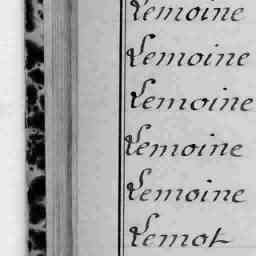 Lemoine
Lemoine
Lemoine
Lemoine
Lemoine
Lemot